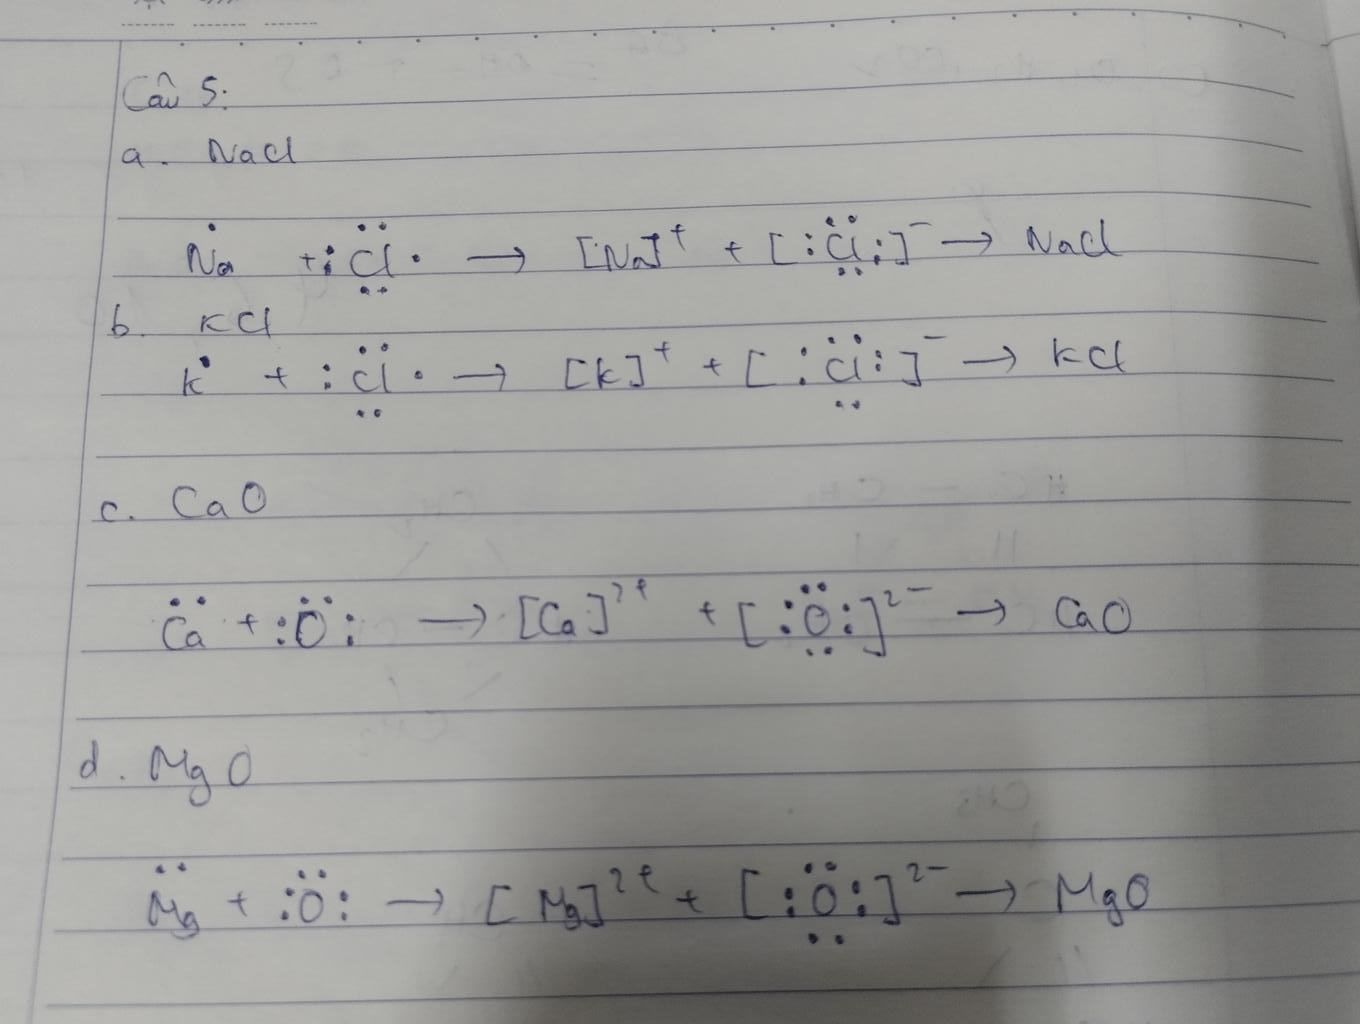 Câu 5:
a. NaCl
Na + :Cl· → [Na]⁺ + [:Cl:]⁻ → NaCl
b. KCl
K + :Cl· → [K]⁺ + [:Cl:]⁻ → KCl
c. CaO
Ca + :O: → [Ca]²⁺ + [:O:]²⁻ → CaO
d. MgO
Mg + :O: → [Mg]²⁺ + [:O:]²⁻ → MgO